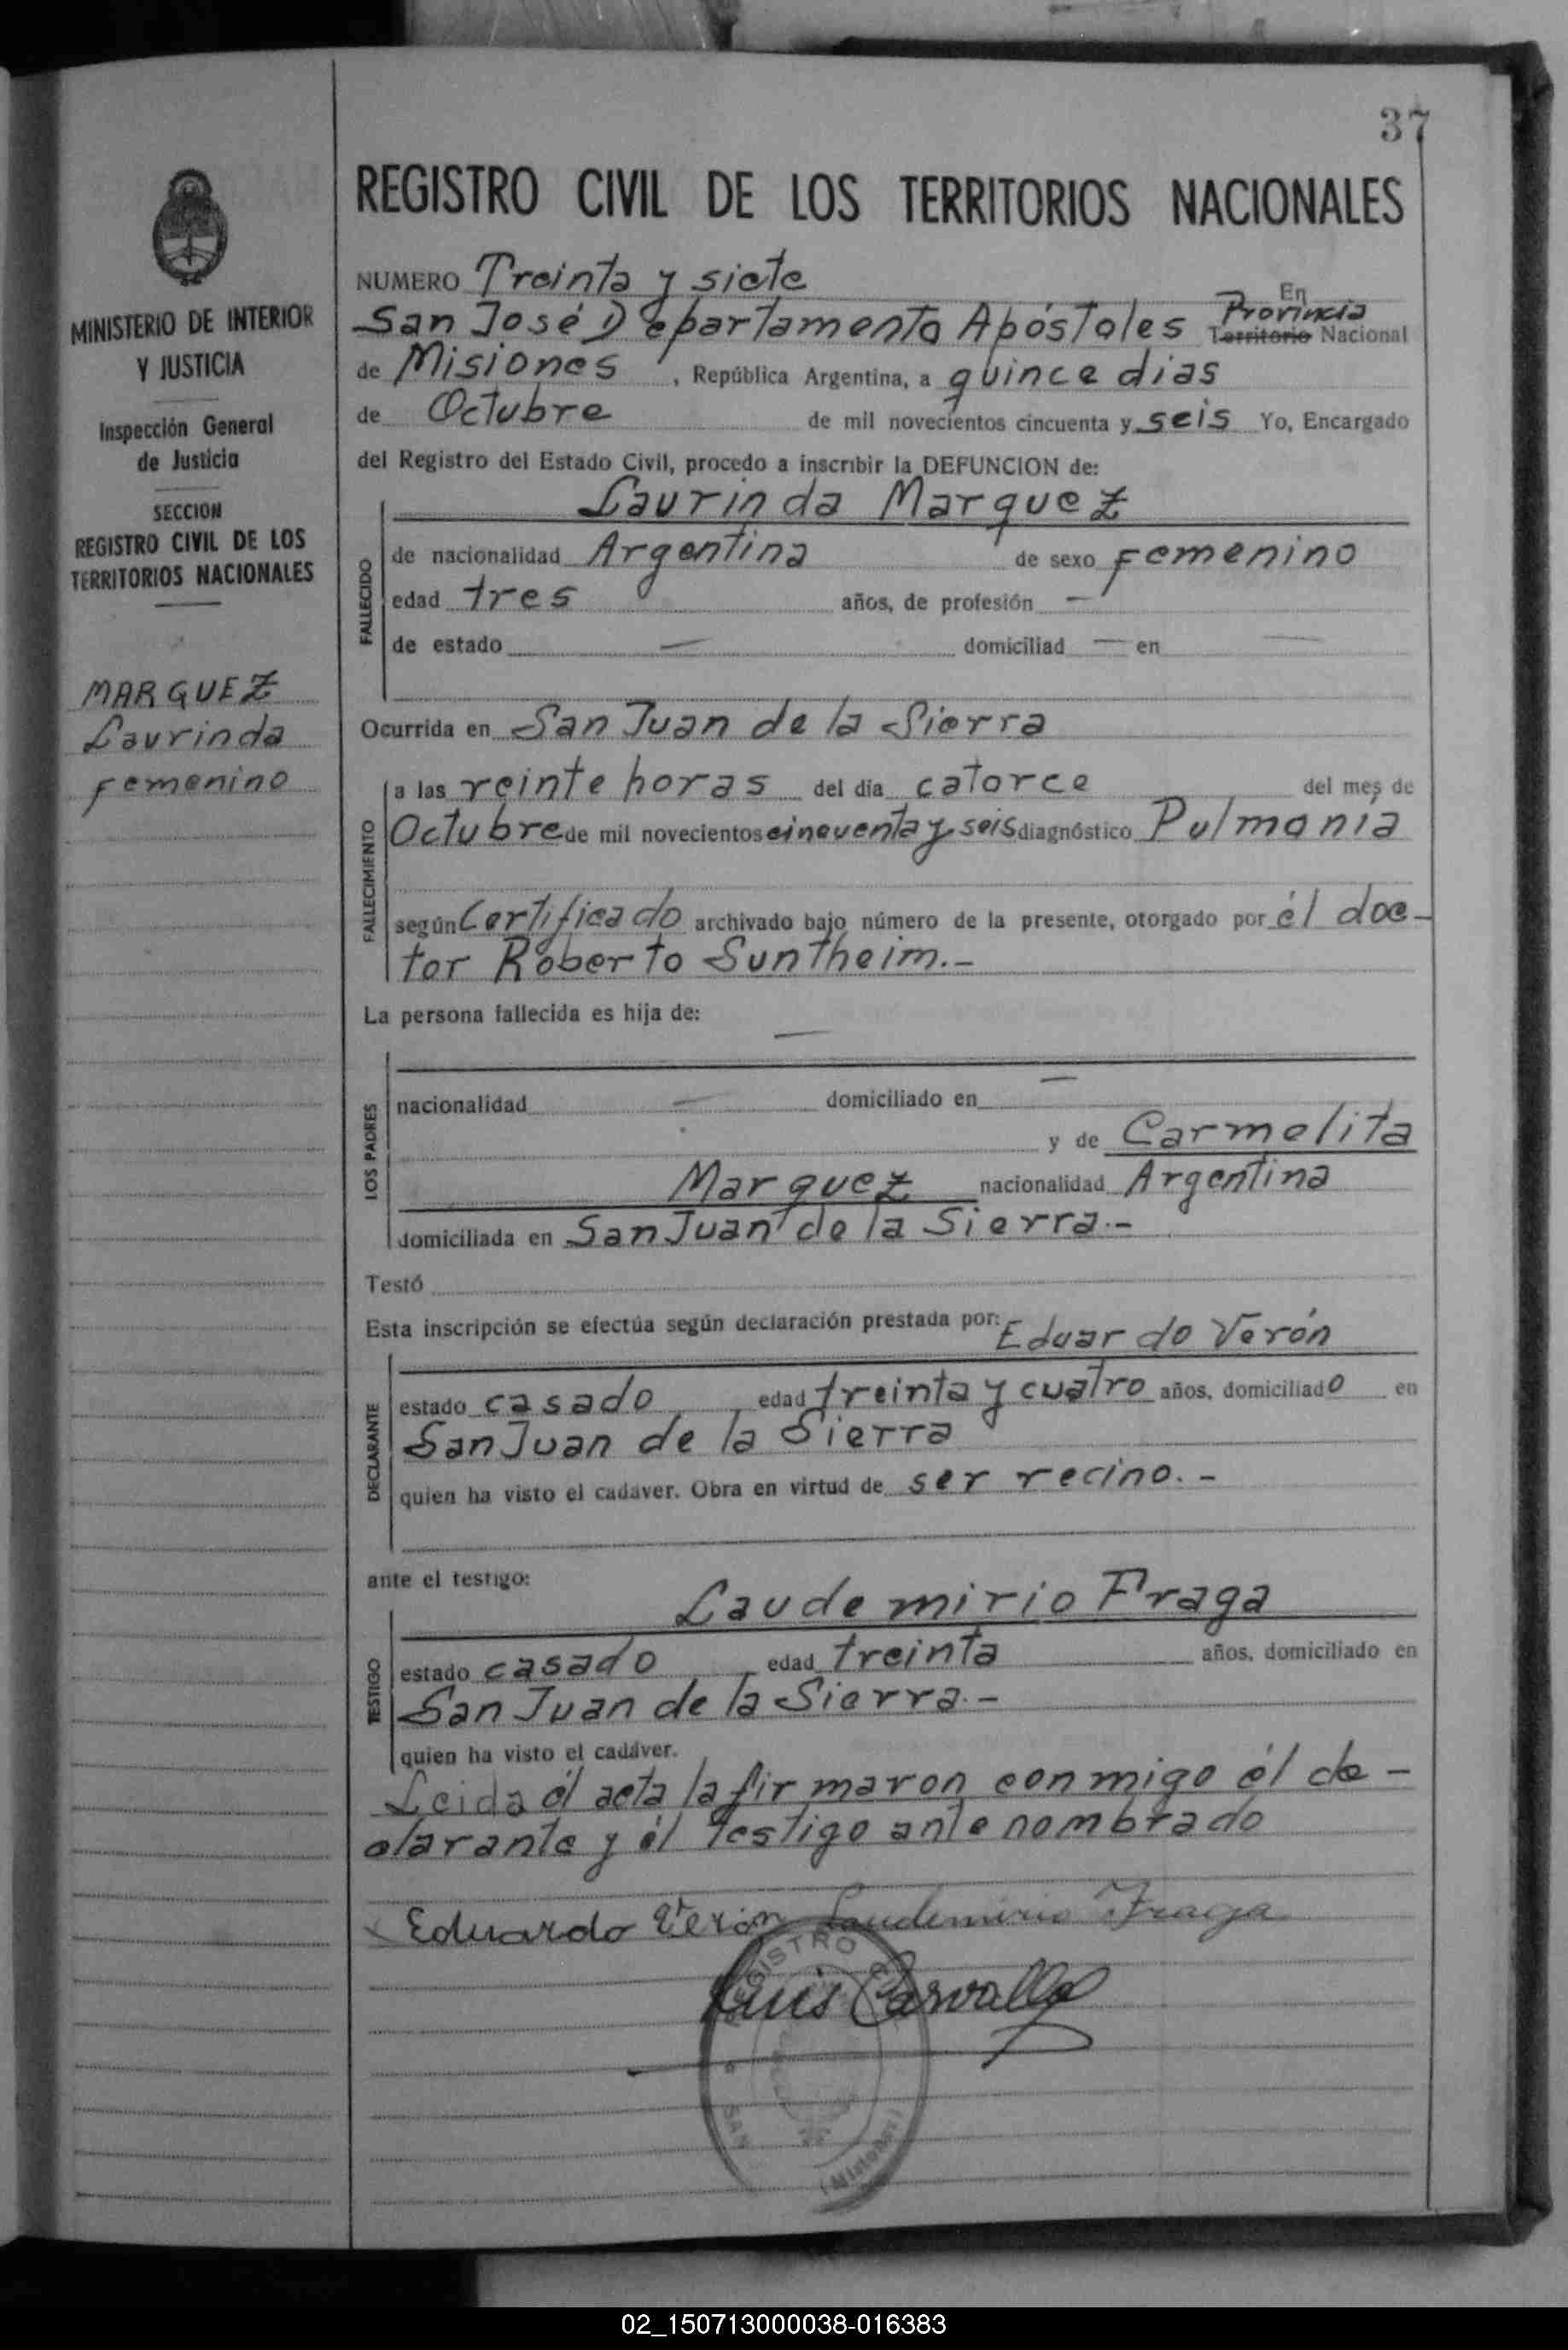 37
REGISTRO CIVIL DE LOS TERRITORIOS NACIONALES
MINISTERIO DE INTERIOR
Y JUSTICIA
Inspección General
de Justicia
SECCION
REGISTRO CIVIL DE LOS
TERRITORIOS NACIONALES
MARQUEZ
Laurinda
femenino
NUMERO Treinta y siete En
San José Departamento Apóstoles Provincia Territorio Nacional
de Misiones, República Argentina, a quince dias
de Octubre de mil novecientos cincuenta y seis Yo, Encargado
del Registro del Estado Civil, procedo a inscribir la DEFUNCION de:
Laurinda Marquez
FALLECIDO
de nacionalidad Argentina de sexo femenino
edad tres años, de profesión —
de estado — domiciliad — en —
Ocurrida en San Juan de la Sierra
FALLECIMIENTO
a las veinte horas del día catorce del mes de
Octubre de mil novecientos cincuenta y seis diagnóstico Pulmonía
según Certificado archivado bajo número de la presente, otorgado por él doc-
tor Roberto Suntheim.-
La persona fallecida es hija de:
—
LOS PADRES
nacionalidad — domiciliado en —
y de Carmelita
Marquez nacionalidad Argentina
domiciliada en San Juan de la Sierra.-
Testó
Esta inscripción se efectúa según declaración prestada por: Eduardo Verón
DECLARANTE
estado casado edad treinta y cuatro años, domiciliado en
San Juan de la Sierra
quien ha visto el cadáver. Obra en virtud de ser vecino.-
ante el testigo:
Laudemirio Fraga
TESTIGO
estado casado edad treinta años, domiciliado en
San Juan de la Sierra.-
quien ha visto el cadáver.
Leida él acta la firmaron conmigo él de-
clarante y él testigo ante nombrado
Eduardo Verón Laudemirio Fraga
Luis Carvallo
REGISTRO
SAN
(Misiones)
02_150713000038-016383